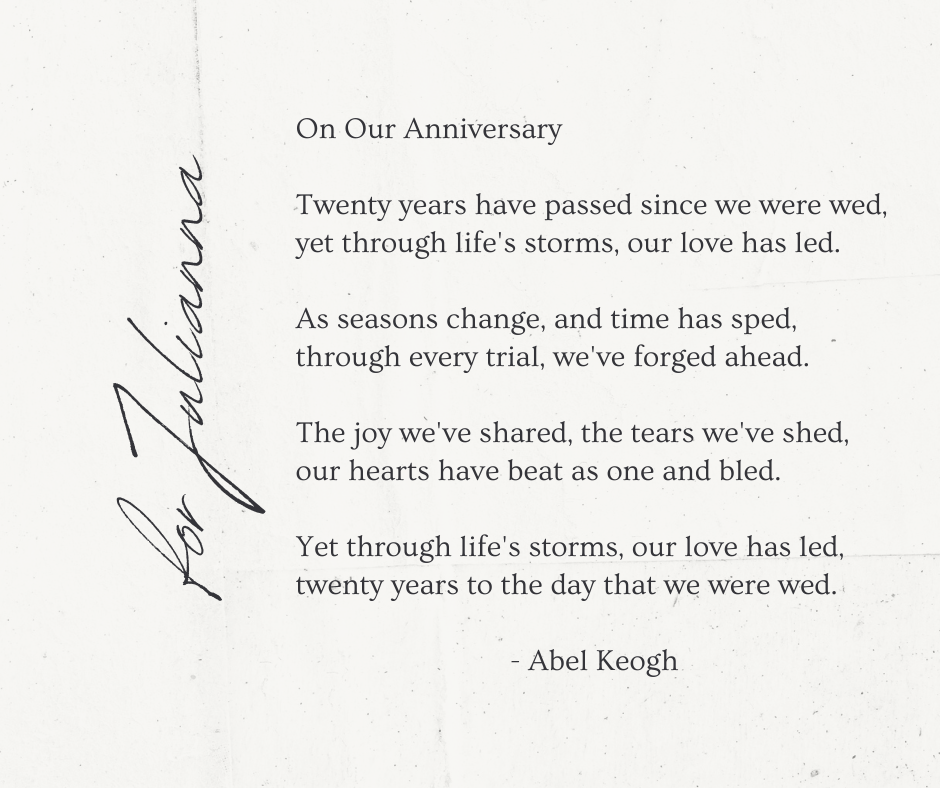 for Julianna
On Our Anniversary
Twenty years have passed since we were wed,
yet through life's storms, our love has led.
As seasons change, and time has sped,
through every trial, we've forged ahead.
The joy we've shared, the tears we've shed,
our hearts have beat as one and bled.
Yet through life's storms, our love has led,
twenty years to the day that we were wed.
- Abel Keogh